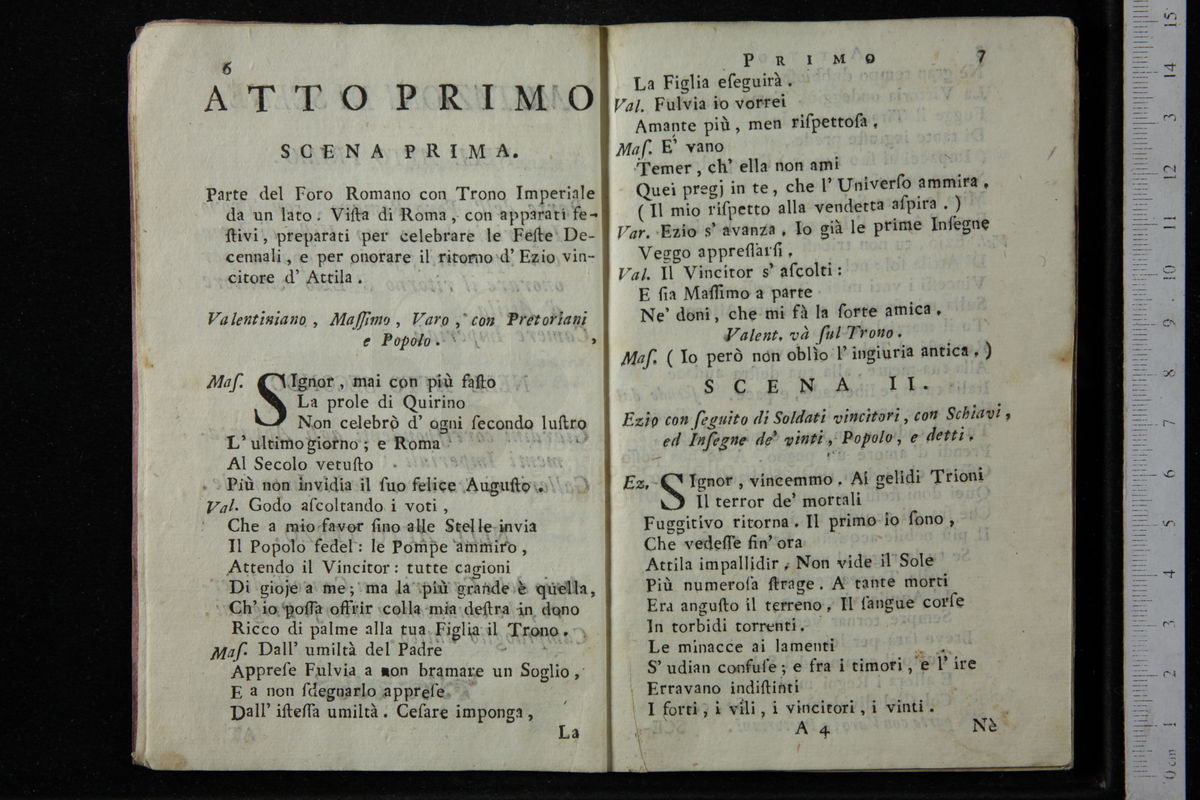 6
ATTO PRIMO
SCENA PRIMA.
Parte del Foro Romano con Trono Imperiale
da un lato. Viſta di Roma, con apparati fe-
ſtivi, preparati per celebrare le Feſte De-
cennali, e per onorare il ritorno d' Ezio vin-
citore d' Attila.
Valentiniano, Maſſimo, Varo, con Pretoriani
e Popolo.
Maſ. SIgnor, mai con più faſto
La prole di Quirino
Non celebrò d' ogni ſecondo luſtro
L' ultimo giorno; e Roma
Al Secolo vetuſto
Più non invidia il ſuo felice Auguſto.
Val. Godo aſcoltando i voti,
Che a mio favor ſino alle Stelle invia
Il Popolo fedel: le Pompe ammiro,
Attendo il Vincitor: tutte cagioni
Di gioje a me; ma la più grande è quella,
Ch' io poſſa offrir colla mia deſtra in dono
Ricco di palme alla tua Figlia il Trono.
Maſ. Dall' umiltà del Padre
Appreſe Fulvia a non bramare un Soglio,
E a non ſdegnarlo appreſe
Dall' iſteſſa umiltà. Ceſare imponga,
La
PRIMO 7
La Figlia eſeguirà.
Val. Fulvia io vorrei
Amante più, men riſpettoſa.
Maſ. E' vano
Temer, ch' ella non ami
Quei pregj in te, che l' Univerſo ammira.
( Il mio riſpetto alla vendetta aſpira. )
Var. Ezio s' avanza. Io già le prime Inſegne
Veggo appreſſarſi.
Val. Il Vincitor s' aſcolti:
E ſia Maſſimo a parte
Ne' doni, che mi fà la ſorte amica.
Valent. và ſul Trono.
Maſ. ( Io però non oblìo l' ingiuria antica. )
SCENA II.
Ezio con ſeguito di Soldati vincitori, con Schiavi,
ed Inſegne de' vinti, Popolo, e detti.
Ez. SIgnor, vincemmo. Ai gelidi Trioni
Il terror de' mortali
Fuggitivo ritorna. Il primo io ſono,
Che vedeſſe ſin' ora
Attila impallidir. Non vide il Sole
Più numeroſa ſtrage. A tante morti
Era anguſto il terreno. Il ſangue corſe
In torbidi torrenti.
Le minacce ai lamenti
S' udian confuſe; e fra i timori, e l' ire
Erravano indiſtinti
I forti, i vili, i vincitori, i vinti.
A 4 Nè
0 cm 1 2 3 4 5 6 7 8 9 10 11 12 3 14 15